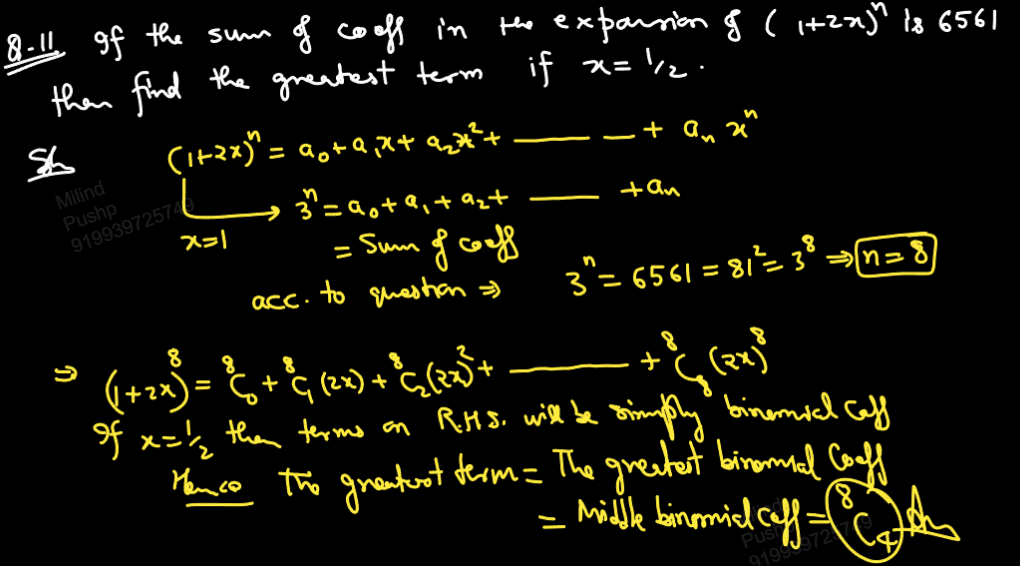 Q-11. If the sum of coeff in the expansion of (1+2x)ⁿ is 6561
then find the greatest term if x = 1/2.
Sln (1+2x)ⁿ = a₀ + a₁x + a₂x² + ——— — + aₙ xⁿ
x=1 → 3ⁿ = a₀ + a₁ + a₂ + ——— + aₙ
= Sum of coeff
acc. to question ⇒ 3ⁿ = 6561 = 81² = 3⁸ ⇒ n = 8
⇒ (1+2x)⁸ = ⁸C₀ + ⁸C₁(2x) + ⁸C₂(2x)² + ——— + ⁸C₈(2x)⁸
If x = 1/2 then terms on R.H.S. will be simply binomial coeff
Hence The greatest term = The greatest binomial Coeff
= Middle binomial coeff = ⁸C₄ Ans
Milind
Pushp
919939725749
Pushp
919939725749